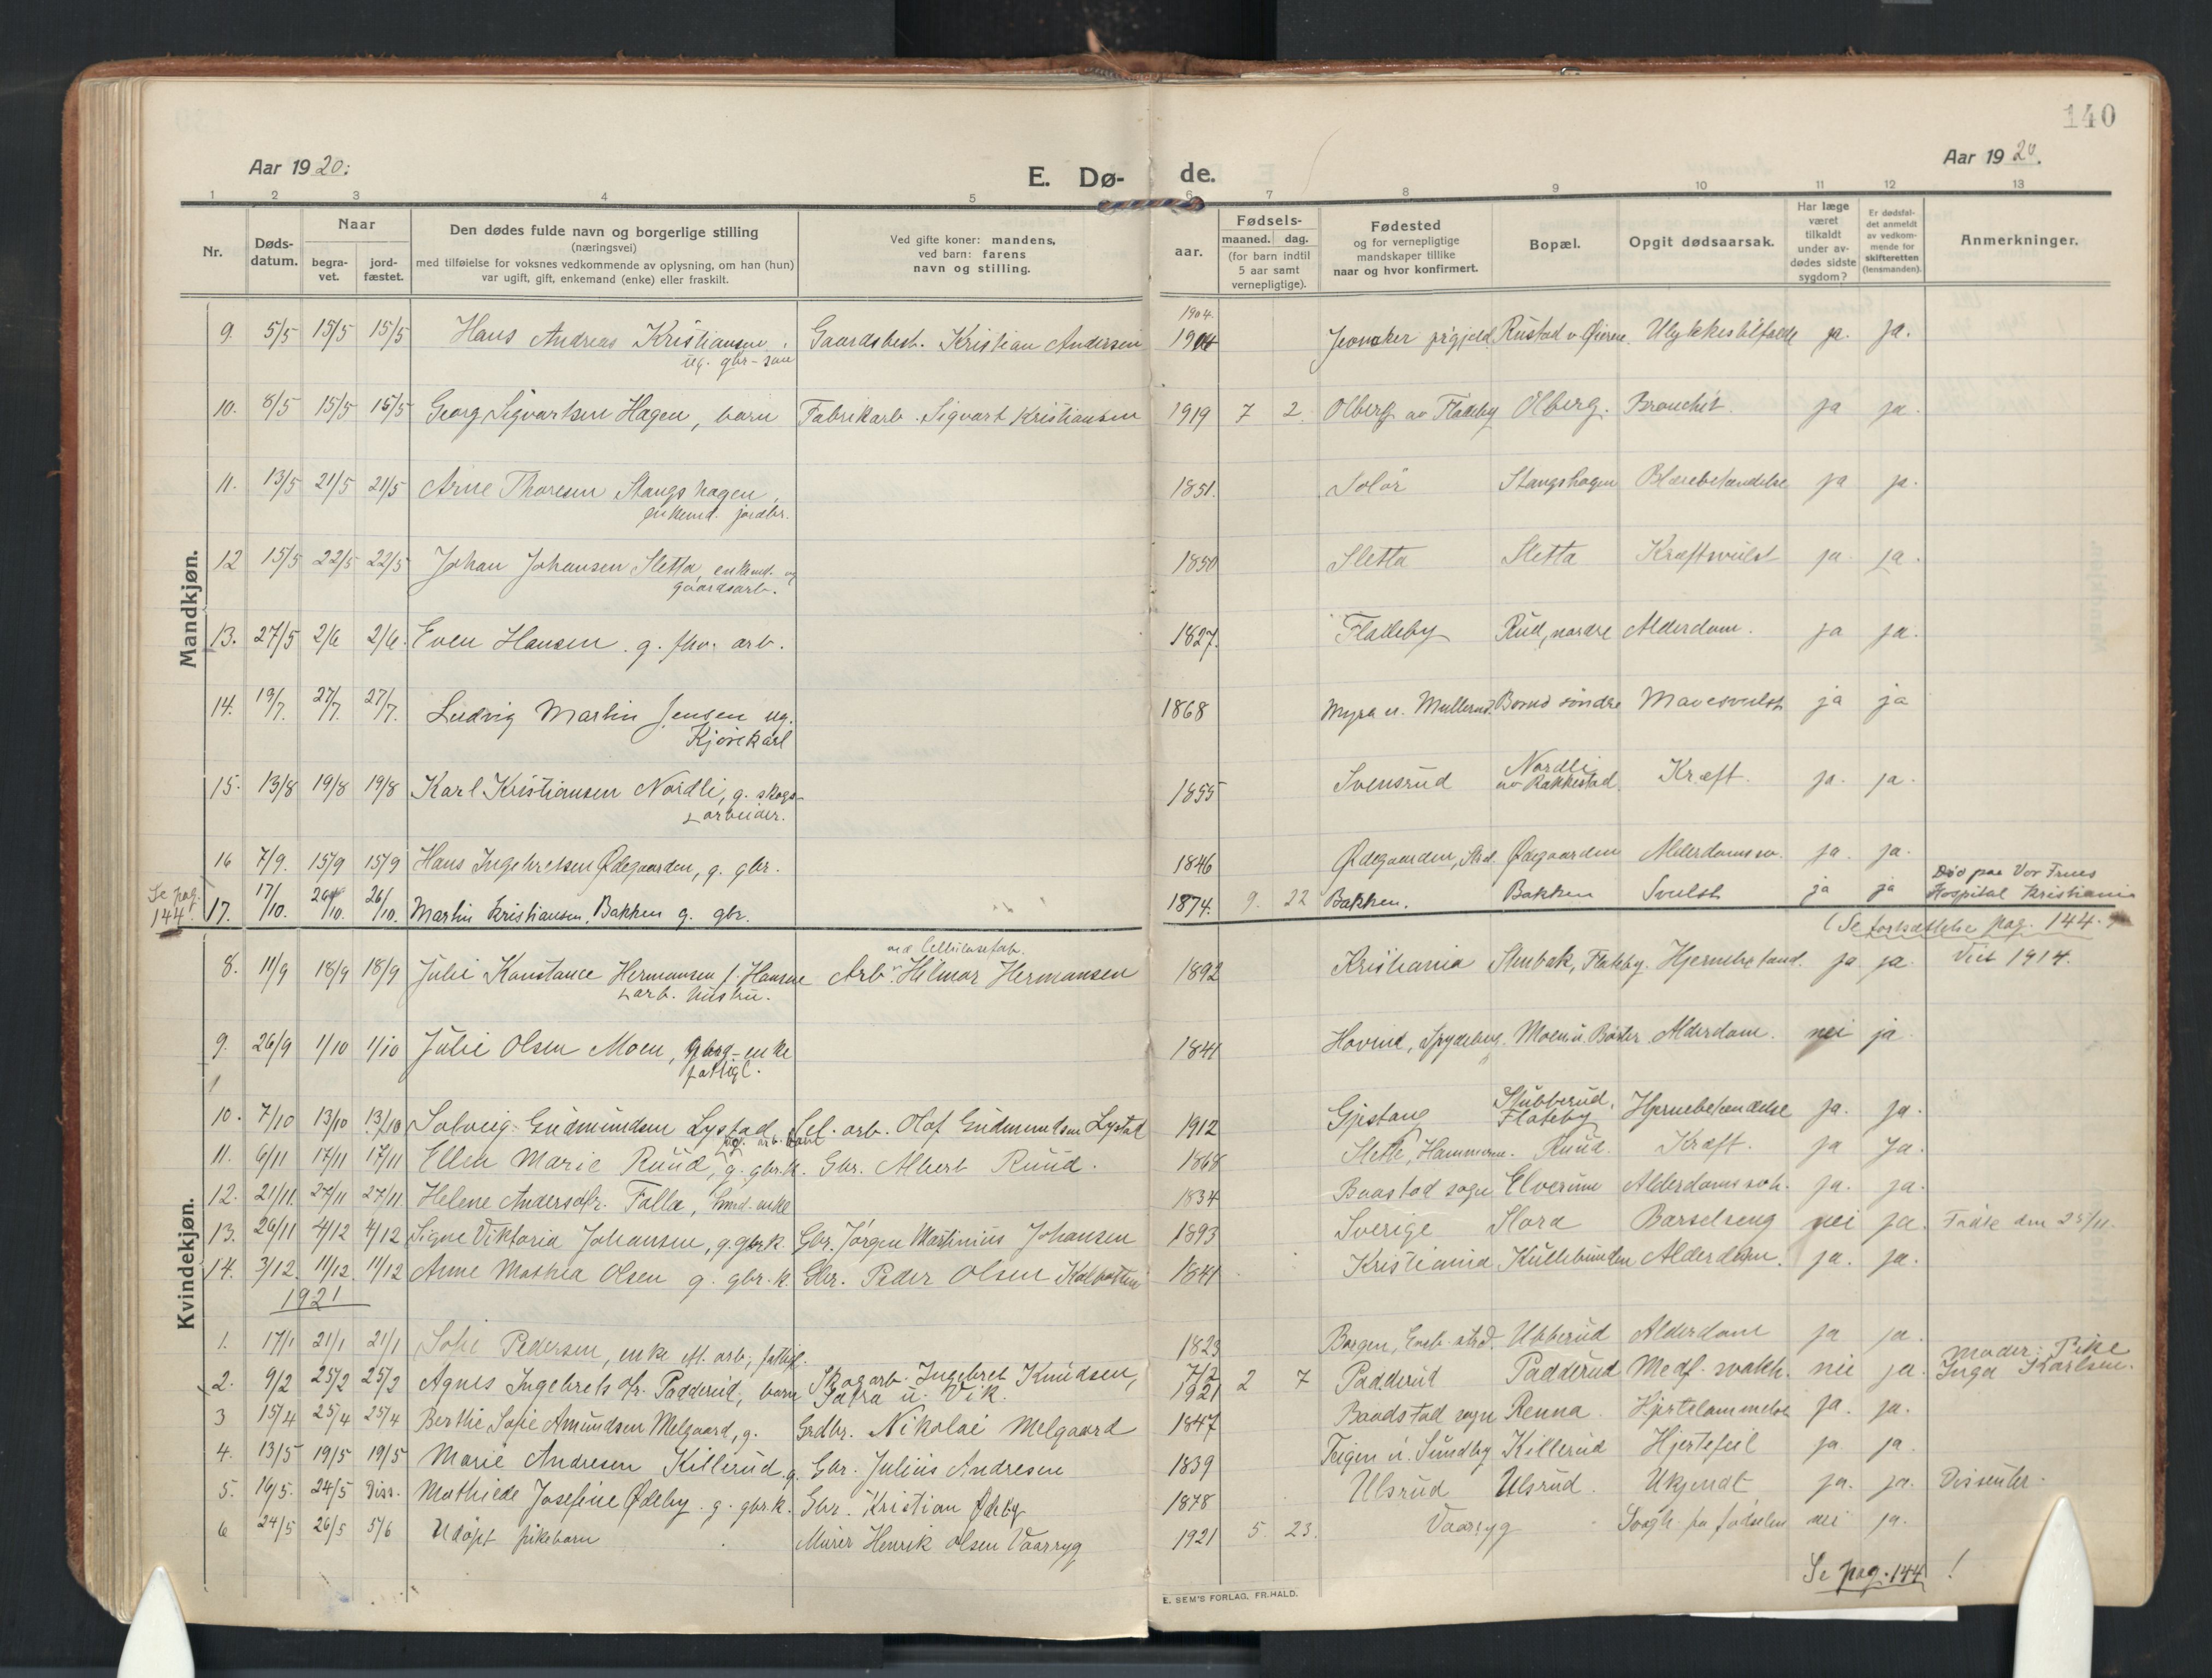 140
Aar 1920.
E. Dø-
de.
Aar 1920.
1 2 3 4 5 6 7 8 9 10 11 12 13
Nr.
Døds-
datum.
Naar
begra-
vet.
jord-
fæstet.
Den dødes fulde navn og borgerlige stilling
(næringsvei)
med tilføielse for voksnes vedkommende av oplysning, om han (hun)
var ugift, gift, enkemand (enke) eller fraskilt.
Ved gifte koner: mandens,
ved barn: farens
navn og stilling.
Fødsels-
aar.
maaned. dag.
(for barn indtil
5 aar samt
vernepligtige).
Fødested
og for vernepligtige
mandskaper tillike
naar og hvor konfirmert.
Bopæl.
Opgit dødsaarsak.
Har læge
været
tilkaldt
under av-
dødes sidste
sygdom?
Er dødsfal-
det anmeldt
av vedkom-
mende for
skifteretten
(lensmanden).
Anmerkninger.
Mandkjøn.
1904.
9. 5/5 15/5 15/5 Hans Andreas Kristiansen, Gaardsbest. Kristian Andersen 1904 Jevnaker prgjeld Rustad v. Øieren Ulykkestilfælde ja. ja.
ug. gbr-søn
10. 8/5 15/5 15/5 Georg Sigvartsen Hagen, barn Fabrikarb. Sigvart Kristiansen 1919 7 2. Olberg av Flateby Olberg. Bronchit. ja ja.
11. 13/5 21/5 21/5 Arne Thoresen Stangshagen, 1851. Solör Stangshagen Blærebetændelse ja ja.
enkemd. jordbr.
12 15/5 22/5 22/5 Johan Johansen Sletta enkemd. og 1850 Sletta Sletta Kræftsvulst ja. ja.
gaardsarb.
13. 27/5 2/6 2/6. Even Hansen. g. fhv. arb. 1827. Flateby Rud, nordre Alderdom. ja ja.
14. 19/7. 27/7. 27/7. Ludvig Martin Jensen ug. 1868 Myra u. Mullerud. søndre Mavesvulst ja ja
Kjørekarl
15. 13/8 19/8 19/8 Karl Kristiansen Nordli, g. skogs- 1855 Svensrud Nordli av Rakkestad. Kræft. ja. ja.
arbeider.
16 7/9. 15/9 15/9 Hans Ingebretsen Ødegaarden, g. gbr. 1846 Ødegaarden, Ødegaarden Alderdomssv. ja. ja.
Se pag. 144. 17. 17/10. 26/10. 26/10. Martin Kristiansen, Bakken g. gbr. 1874. 9. 22 Bakken. Bakken Svulst ja ja Død paa Vor Frues
Hospital Kristiania
(Se fortsættelse pag. 144.
Kvindekjøn.
ved Cellulosefab.
8. 11/9 18/9 18/9 Julie Konstance Hermansen f. Hansen Arb. Hilmar Hermansen 1892 Kristiania Stenbak, Flateby. Hjernebetænd. ja ja. Viet 1914.
arb. hustru.
9. 26/9 1/10 1/10 Julie Olsen Moen, enke 1841 Hovind, Spydeberg. Moen u. Bøsler. Alderdom. nei ja.
fattigl.
10. 7/10 13/10 13/10 Solveig Gudmundsen Lystad Cel. arb. Olaf Gudmundsen Lystad 1912 Gjestang Stubberud, Flateby Hjernebetændelse ja. ja.
ug. arb. barn
11. 6/11 17/11 17/11 Ellen Marie Ruud, g. gbr.k. Gbr. Albert Ruud. 1868 Slette, Hammeren. Ruud. Kræft. ja ja.
12. 21/11. 27/11 27/11 Helene Andersdtr. Falla, enke 1834 Baastad sogn Elverum Alderdomssvk. ja. ja.
13. 26/11 4/12 4/12 Signe Viktoria Johansen, g.gbr.k. Gbr. Jørgen Martinius Johansen 1893 Sverige Slora Barselseng nei ja. Fødte den 25/11.
14. 3/12. 11/12. 11/12 Anne Mathea Olsen g. gbr.k. Gbr. Peder Olsen 1841 Kristiania Kullebunden Alderdom. ja. ja.
1921
1. 17/1 21/1 21/1 Sofie Pedersen, enke eft. arb., fattigl. 1823 Borgen, Ubberud Alderdom ja ja.
2. 9/2 25/2 25/2 Agnes Ingebretsdtr. Padderud, barn Skogarb. Ingebret Knudsen, 7/2 1921 2 7 Padderud Padderud Medf. svakh. nei ja. Moder: Pike
Sætra u. Vik. Inga Karlsen.
3 15/4 25/4 25/4 Berthe Sofie Amundsen Melgaard, g. Grdbr. Nikolai Melgaard 1847 Baadstad sogn Renna. Hjertelammelse ja. ja.
4. 13/5 19/5 19/5 Marie Andresen Killerud g. Gbr. Julius Andresen 1839 Teigen u. Sundby Killerud Hjertefeil ja ja.
5. 16/5. 24/5 Diss. Mathilde Josefine Ødeby. g. gbr.k. Gbr. Kristian Ødeby 1878 Ulsrud Ulsrud. Ukjendt ja. ja. Dissenter.
6 24/5 26/5 5/6 Udøpt pikebarn Murer Henrik Olsen Vaarryg 1921 5. 23. Vaarryg Svagh. fra fødselen nei ja.
Se pag. 144 !
E. SEM'S FORLAG, FR.HALD.